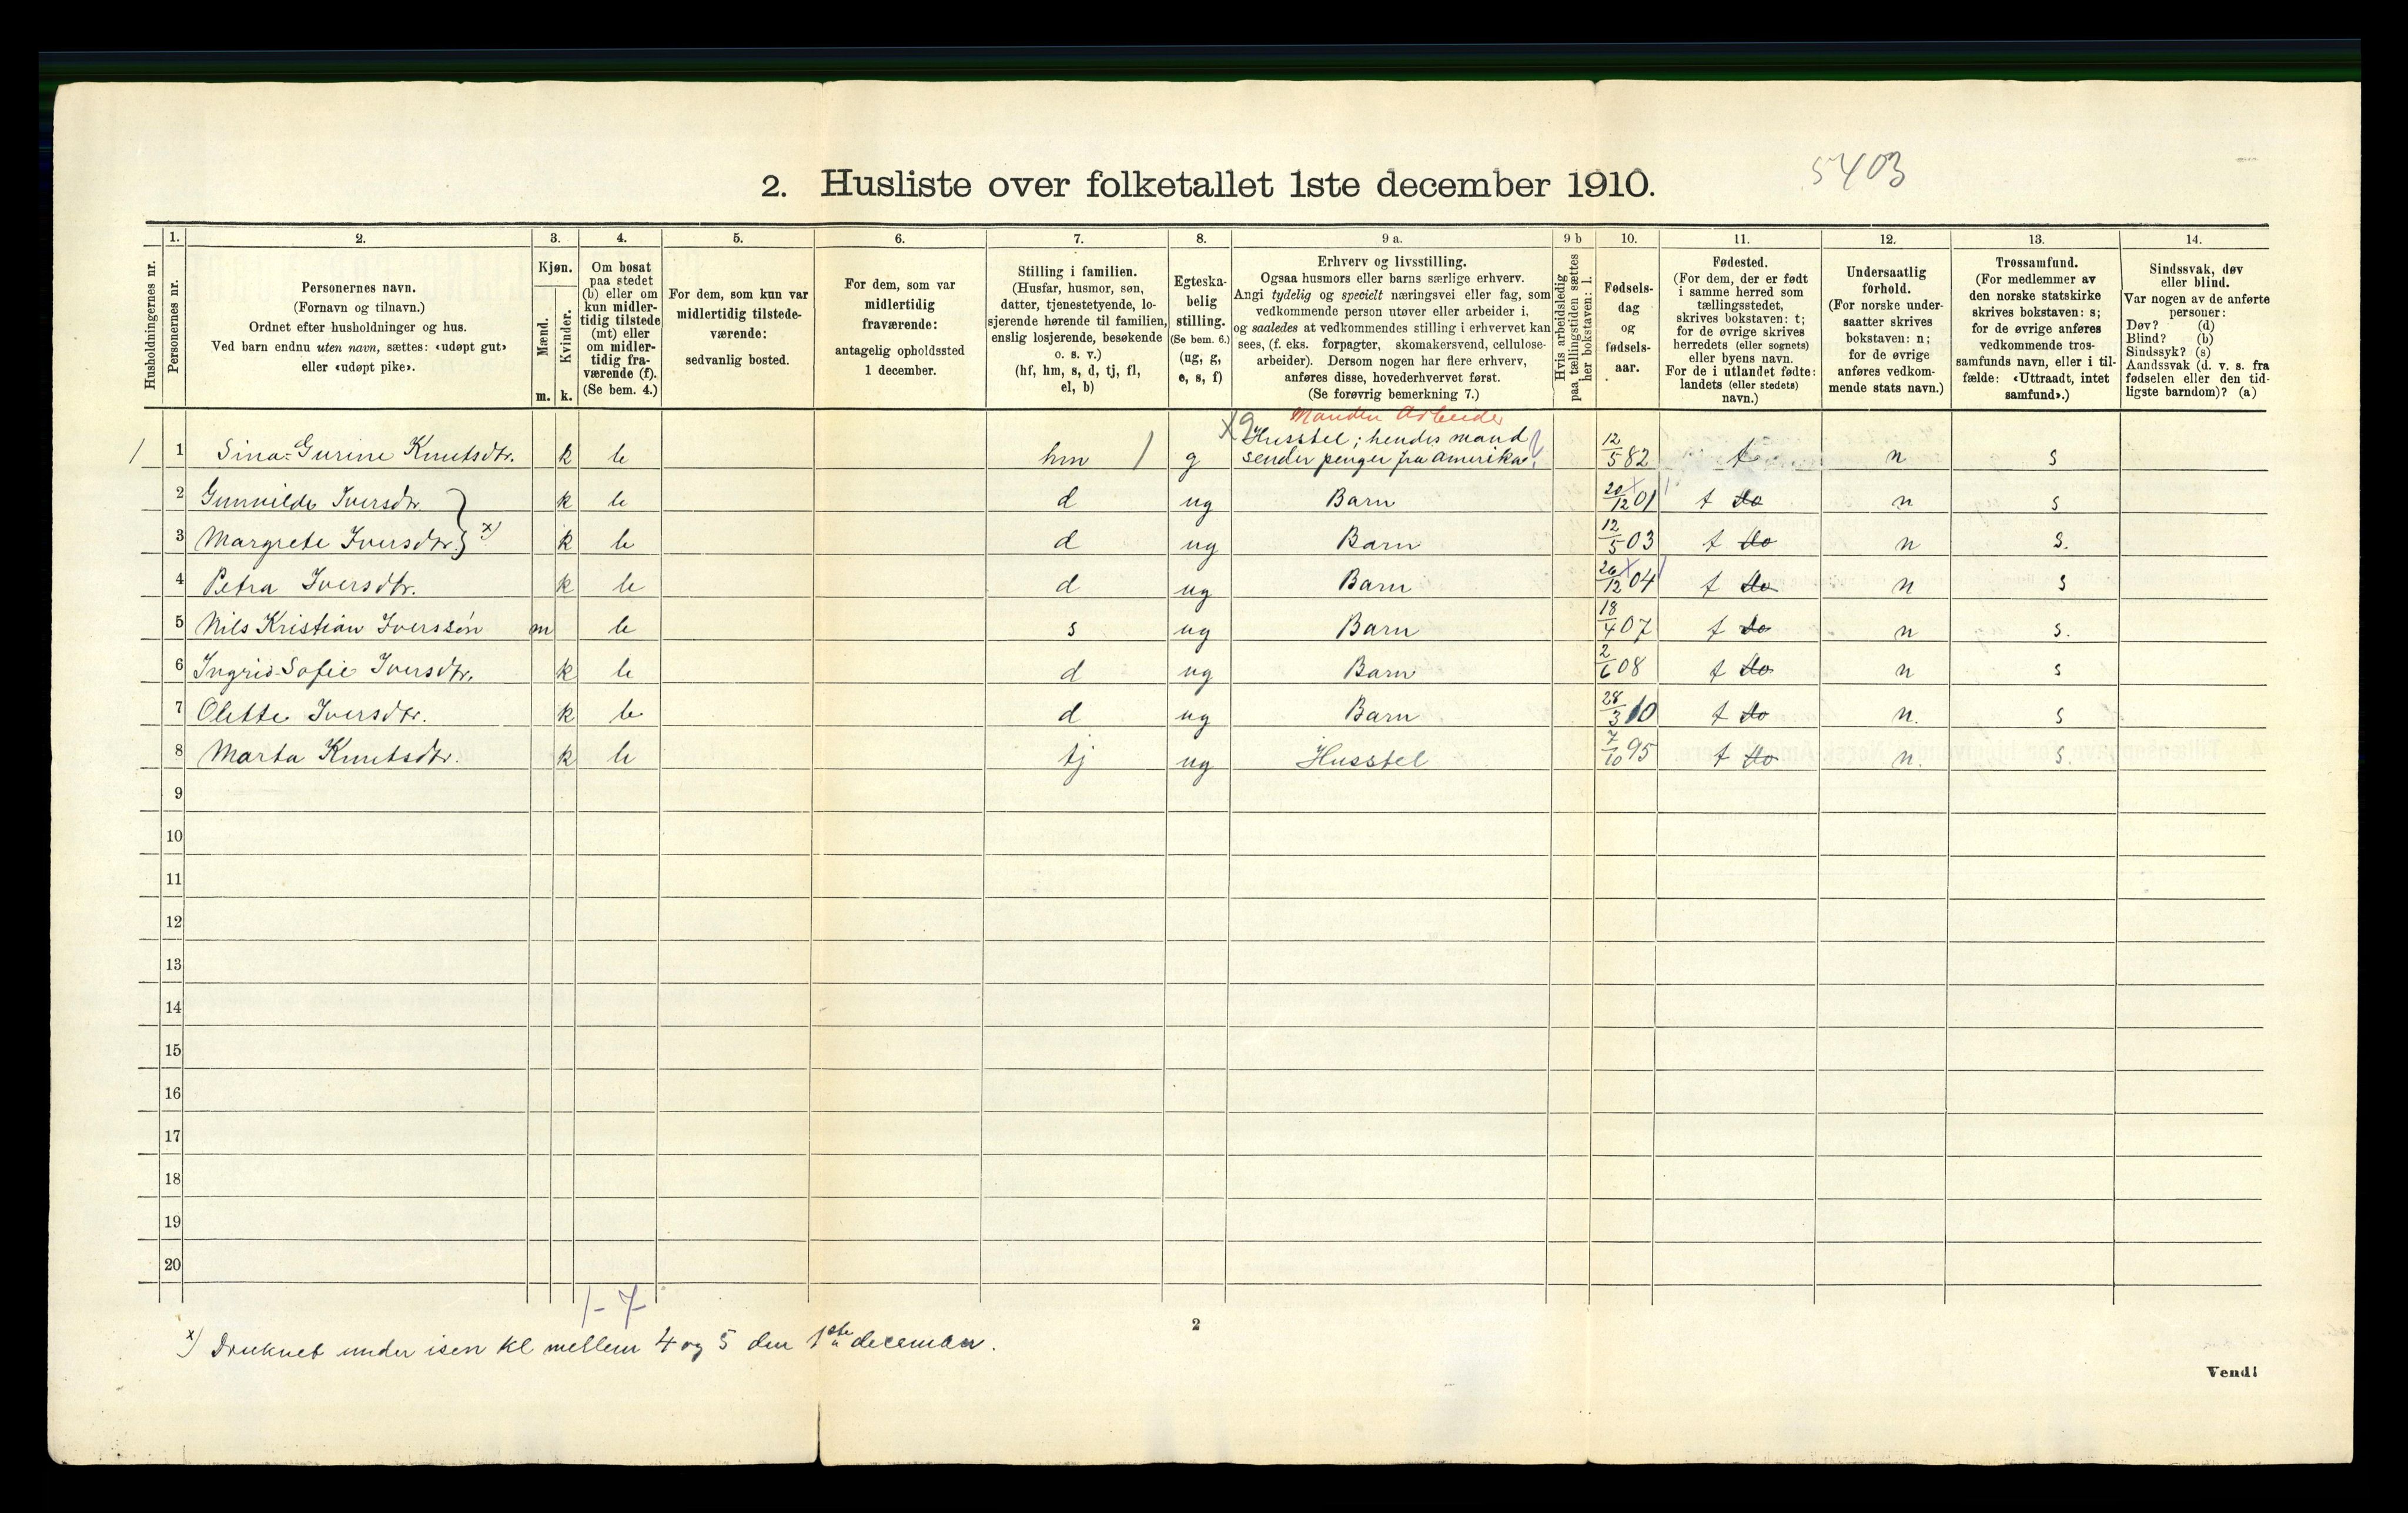 2. Husliste over folketallet 1ste december 1910.
5403
Husholdningernes nr.
1.
Personernes nr.
2.
Personernes navn.
(Fornavn og tilnavn.)
Ordnet efter husholdninger og hus.
Ved barn endnu uten navn, sættes: «udøpt gut»
eller «udøpt pike».
3.
Kjøn.
Mænd.
Kvinder.
m. k.
4.
Om bosat
paa stedet
(b) eller om
kun midler-
tidig tilstede
(mt) eller
om midler-
tidig fra-
værende (f).
(Se bem. 4.)
5.
For dem, som kun var
midlertidig tilstede-
værende:
sedvanlig bosted.
6.
For dem, som var
midlertidig
fraværende:
antagelig opholdssted
1 december.
7.
Stilling i familien.
(Husfar, husmor, søn,
datter, tjenestetyende, lo-
sjerende hørende til familien,
enslig losjerende, besøkende
o. s. v.)
(hf, hm, s, d, tj, fl,
el, b)
8.
Egteska-
belig
stilling.
(Se bem. 6.)
(ug, g,
e, s, f)
9 a.
Erhverv og livsstilling.
Ogsaa husmors eller barns særlige erhverv.
Angi tydelig og specielt næringsvei eller fag, som
vedkommende person utøver eller arbeider i,
og saaledes at vedkommendes stilling i erhvervet kan
sees, (f. eks. forpagter, skomakersvend, cellulose-
arbeider). Dersom nogen har flere erhverv,
anføres disse, hovederhvervet først.
(Se forøvrig bemerkning 7.)
9 b
Hvis arbeidsledig
paa tællingstiden sættes
her bokstaven: l.
10.
Fødsels-
dag
og
fødsels-
aar.
11.
Fødested.
(For dem, der er født
i samme herred som
tællingsstedet,
skrives bokstaven: t;
for de øvrige skrives
herredets (eller sognets)
eller byens navn.
For de i utlandet fødte:
landets (eller stedets)
navn.)
12.
Undersaatlig
forhold.
(For norske under-
saatter skrives
bokstaven: n;
for de øvrige
anføres vedkom-
mende stats navn.)
13.
Trossamfund.
(For medlemmer av
den norske statskirke
skrives bokstaven: s;
for de øvrige anføres
vedkommende tros-
samfunds navn, eller i til-
fælde: «Uttraadt, intet
samfund».)
14.
Sindssvak, døv
eller blind.
Var nogen av de anførte
personer:
Døv? (d)
Blind? (b)
Sindssyk? (s)
Aandssvak (d. v. s. fra
fødselen eller den tid-
ligste barndom)? (a)
Manden Arbeider
1 1 Sina-Gurine Knutsdtr. k b hm g Husstel; hendes mand sender penger fra Amerika 12/5 82 t n s
2 Gunnilde Iversdtr. k b d ug Barn 20/12 01 t do n s
3 Margrete Iversdtr. x) k b d ug Barn 12/5 03 t do n s.
4 Petra Iversdtr. k b d ug Barn 26/12 04 t do n s
5 Nils Kristian Iverssøn m b s ug Barn 18/4 07 t do n s.
6 Ingrid-Sofie Iversdtr. k b d ug Barn 2/6 08 t do n s
7 Olette Iversdtr. k b d ug Barn 28/3 10 t do n. s
8 Marta Knutsdtr. k b tj ug Husstel 7/10 95 t do n. s.
9
10
11
12
13
14
15
16
17
18
19
20
1-7
x) Druknet under isen kl mellem 4 og 5 den 1ste december.
2
Vend!